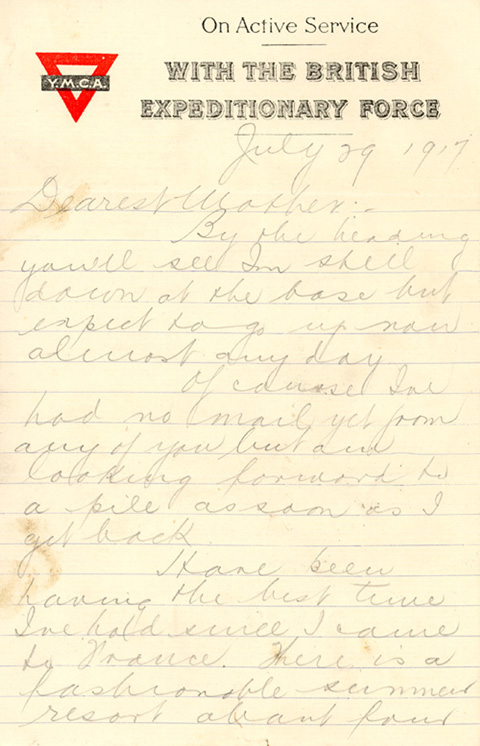 On Active Service
Y.M.C.A.
WITH THE BRITISH
EXPEDITIONARY FORCE
July 29 1917
Dearest Mother:-
By the heading
you'll see I'm still
down at the base but
expect to go up now
almost any day
Of course I've
had no mail yet from
any of you but am
looking forward to
a pile as soon as I
get back.
Have been
having the best time
I've had since I came
to France. There is a
fashionable summer
resort about four